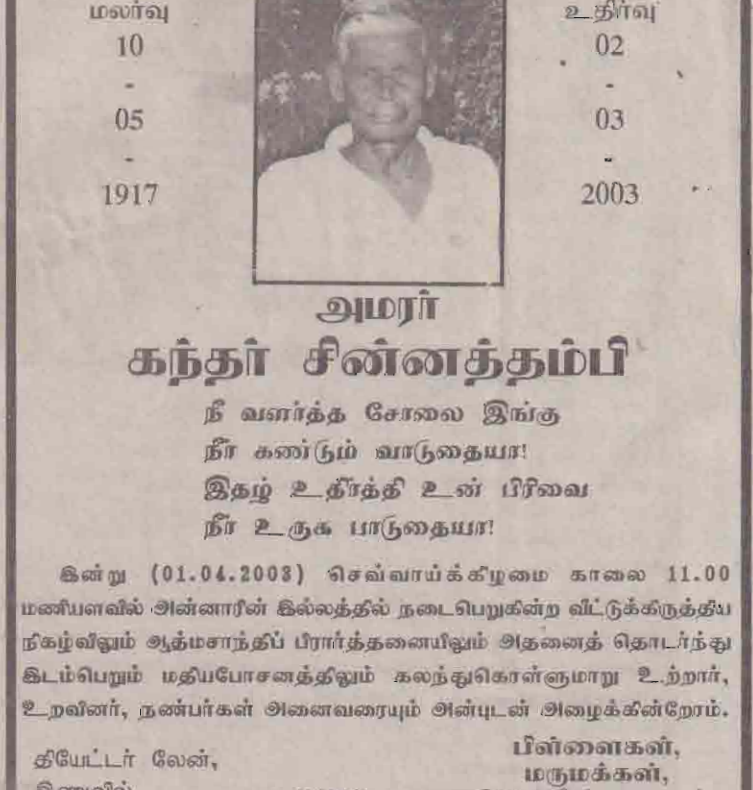 மலர்வு
10
-
05
-
1917
உதிர்வு
02
-
03
-
2003
அமரர்
கந்தர் சின்னத்தம்பி
நீ வளர்த்த சோலை இங்கு
நீர் கண்டும் வாடுதையா!
இதழ் உதிர்த்தி உன் பிரிவை
நீர் உருக பாடுதையா!
இன்று (01.04.2003) செவ்வாய்க்கிழமை காலை 11.00
மணியளவில் அன்னாரின் இல்லத்தில் நடைபெறுகின்ற வீட்டுக்கிருத்திய
நிகழ்விலும் ஆத்மசாந்திப் பிரார்த்தனையிலும் அதனைத் தொடர்ந்து
இடம்பெறும் மதியபோசனத்திலும் கலந்துகொள்ளுமாறு உற்றார்,
உறவினர், நண்பர்கள் அனைவரையும் அன்புடன் அழைக்கின்றோம்.
தியேட்டர் லேன்,
பிள்ளைகள்,
மருமக்கள்,